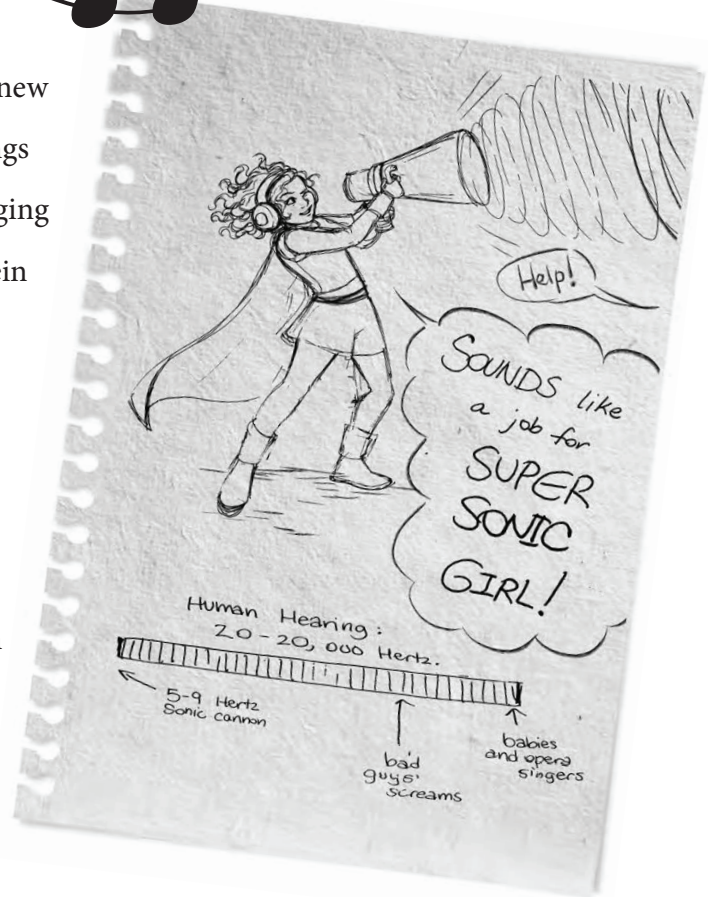 new
ngs
ging
ein
Help!
SOUNDS like
a job for
SUPER
SONIC
GIRL!
Human Hearing:
20-20,000 Hertz.
5-9 Hertz
Sonic cannon
bad
guys'
screams
babies
and opera
singers